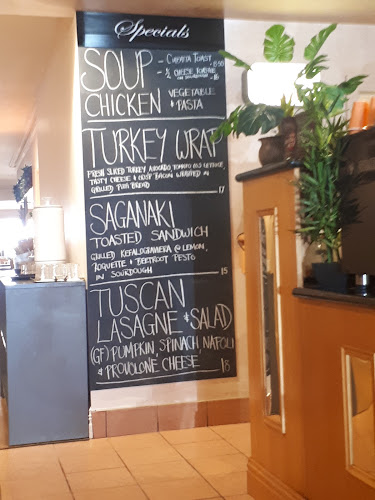 Specials
SOUP - CIABATTA TOAST
CHICKEN VEGETABLE
& PASTA
TURKEY WRAP
TASTY CHEESE & CRISP BACON WRAPPED IN
GRILLED PITA BREAD 17
SAGANAKI
TOASTED SANDWICH
GRILLED KEFALOGRAVIERA @ LEMON,
ROQUETTE & BEETROOT PESTO
IN SOURDOUGH 15
TUSCAN
LASAGNE & SALAD
(GF) PUMPKIN, SPINACH, NAPOLI
& PROVOLONE CHEESE 18